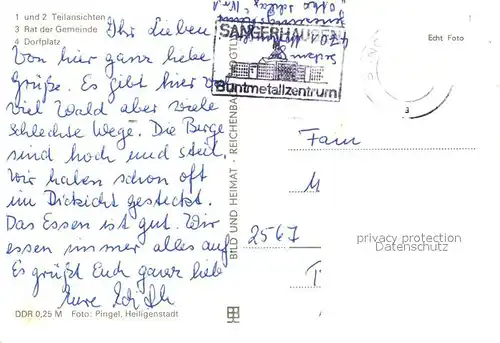 1 und 2 Teilansichten
3 Rat der Gemeinde
4 Dorfplatz
Ihr Lieben
Von hier ganz liebe
Grüße. Es gibt hier
viel Wald aber viele
schlechte Wege. Die Berge
sind hoch und steil.
Wir haben schon oft
im Dickicht gesteckt.
Das Essen ist gut. Wir
essen immer alles auf
Es grüßt Euch ganz lieb
Eure
DDR 0,25 M Foto: Pingel, Heiligenstadt
BILD UND HEIMAT · REICHENBACH
SANGERHAUSEN
Buntmetallzentrum
Echt Foto
Fam
M
2567
privacy protection
Datenschutz